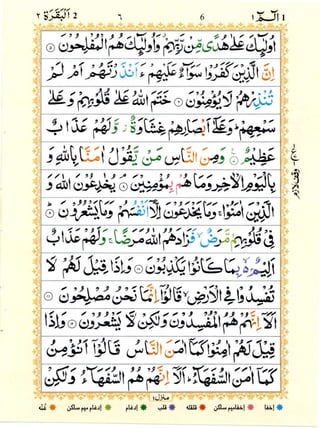 الۤمّۤ ١ 6 ٦ البقرة 2 ٢
اُولٰٓئِكَ عَلٰى هُدًى مِّنْ رَّبِّهِمْ وَاُولٰٓئِكَ هُمُ الْمُفْلِحُوْنَ ۝
اِنَّ الَّذِيْنَ كَفَرُوْا سَوَآءٌ عَلَيْهِمْ ءَاَنْذَرْتَهُمْ اَمْ لَمْ
تُنْذِرْهُمْ لَا يُؤْمِنُوْنَ ۝ خَتَمَ اللهُ عَلٰى قُلُوْبِهِمْ وَ عَلٰى
سَمْعِهِمْ ؕ وَعَلٰٓى اَبْصَارِهِمْ غِشَاوَةٌ ؗ وَّلَهُمْ عَذَابٌ
عَظِيْمٌ ۝ وَمِنَ النَّاسِ مَنْ يَّقُوْلُ اٰمَنَّا بِاللهِ وَ
بِالْيَوْمِ الْاٰخِرِ وَمَا هُمْ بِمُؤْمِنِيْنَ ۝ يُخٰدِعُوْنَ اللهَ وَ
الَّذِيْنَ اٰمَنُوْا ۚ وَمَا يَخْدَعُوْنَ اِلَّاۤ اَنْفُسَهُمْ وَمَا يَشْعُرُوْنَ ۝
فِيْ قُلُوْبِهِمْ مَّرَضٌ ۙ فَزَادَهُمُ اللهُ مَرَضًا ۚ وَلَهُمْ عَذَابٌ
اَلِيْمٌۢ ۙ بِمَا كَانُوْا يَكْذِبُوْنَ ۝ وَاِذَا قِيْلَ لَهُمْ لَا
تُفْسِدُوْا فِي الْاَرْضِ ۙ قَالُوْۤا اِنَّمَا نَحْنُ مُصْلِحُوْنَ ۝
اَلَاۤ اِنَّهُمْ هُمُ الْمُفْسِدُوْنَ وَلٰكِنْ لَّا يَشْعُرُوْنَ ۝ وَاِذَا
قِيْلَ لَهُمْ اٰمِنُوْا كَمَاۤ اٰمَنَ النَّاسُ قَالُوْۤا اَنُؤْمِنُ
كَمَاۤ اٰمَنَ السُّفَهَآءُ ؕ اَلَاۤ اِنَّهُمْ هُمُ السُّفَهَآءُ وَلٰكِنْ
وقف لازم
منزل ١
اخفا اخفا میم ساکن قلقله قلب ادغام ادغام میم ساکن غنّه